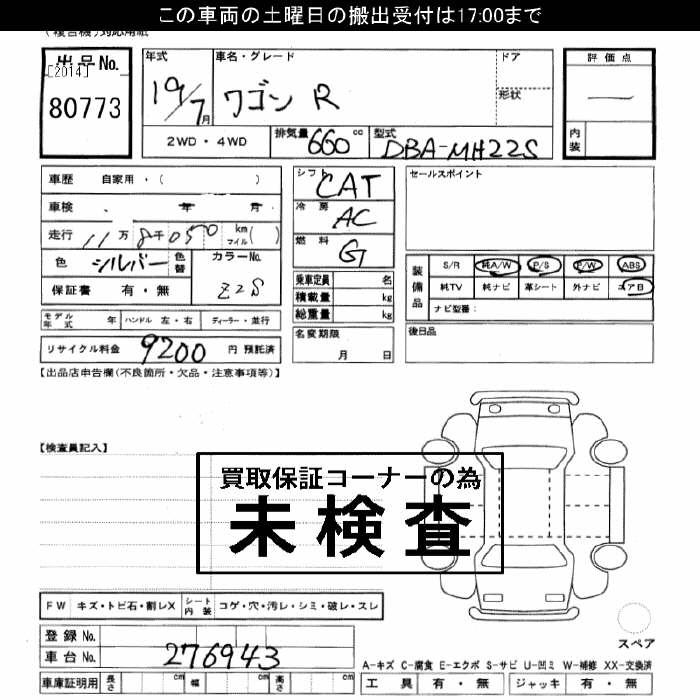 この車両の土曜日の搬出受付は17:00まで
出品No.
[2014]
80773
年式
19/7月
車名・グレード
ワゴン R
ドア
形状
評価点
—
内装
2WD・4WD
排気量 660 cc
型式 DBA-MH22S
車歴 自家用・( )
車検 年 月
走行 11万 8千 050 km マイル( )
色 シルバー 色替
カラーNo. Z2S
保証書 有・無
モデル年式 年 ハンドル 左・右 ディーラー・並行
リサイクル料金 9200 円 預託済
シフト CAT
冷房 AC
燃料 G
乗車定員 名
積載量 kg
総重量 kg
名変期限
月 日
セールスポイント
装備品
S/R 純A/W P/S P/W ABS
純TV 純ナビ 革シート 外ナビ エアB
ナビ型番:
後日品
【出品店申告欄(不良箇所・欠品・注意事項等)】
【検査員記入】
買取保証コーナーの為
未検査
FW キズ・トビ石・割レX シート内装 コゲ・穴・汚レ・シミ・破レ・スレ
登録No.
車台No. 276943
車庫証明用 長さ cm 幅 cm 高さ cm
スペア
A-キズ C-腐食 E-エクボ S-サビ U-凹ミ W-補修 XX-交換済
工具 有・無 ジャッキ 有・無